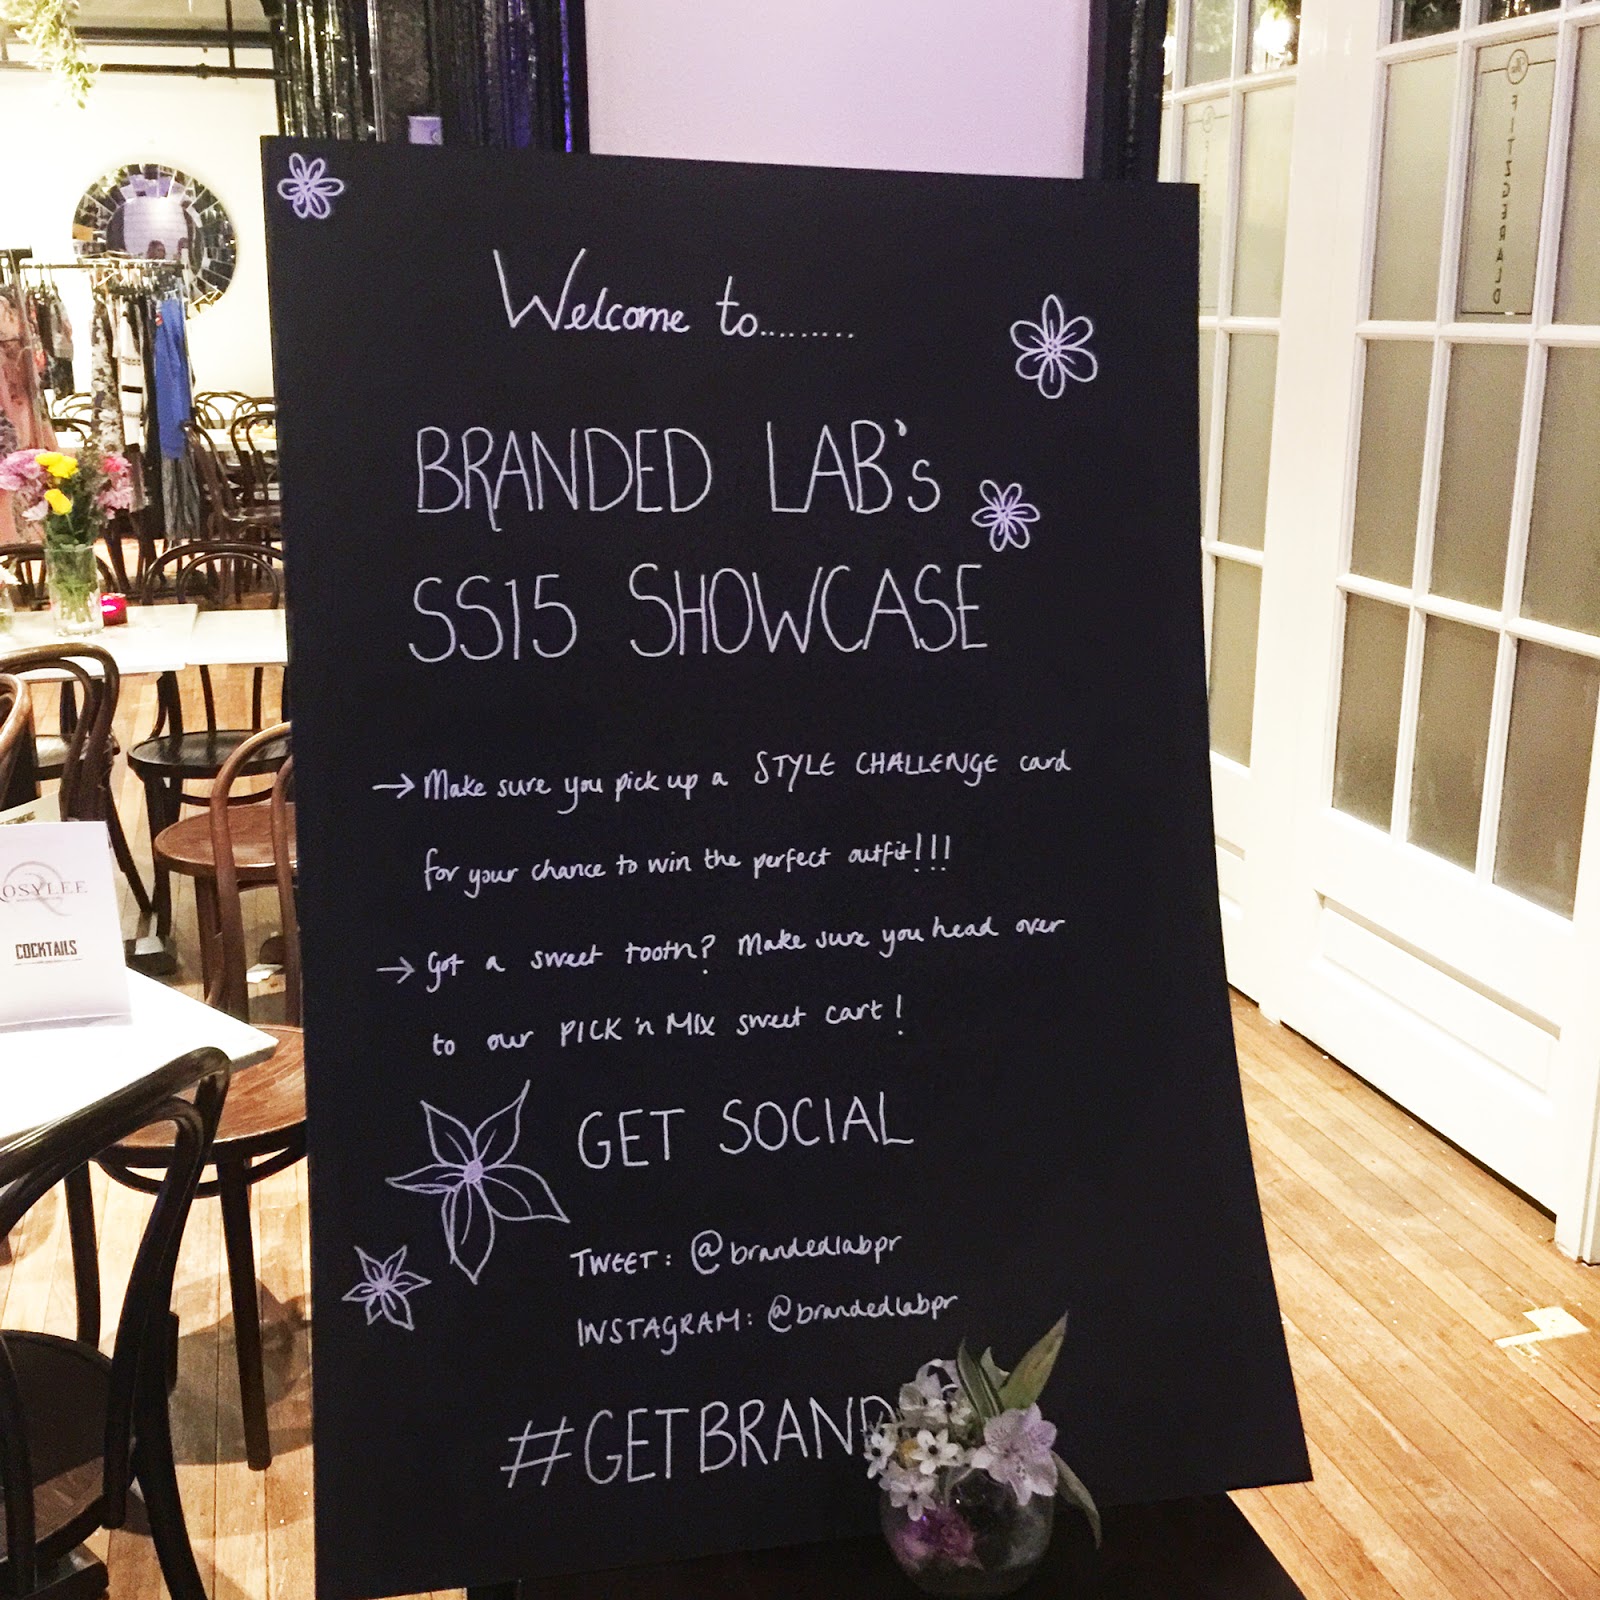 Welcome to.........
BRANDED LAB's
SS15 SHOWCASE
→ Make sure you pick up a STYLE CHALLENGE card
for your chance to win the perfect outfit!!!
→ Got a sweet tooth? Make sure you head over
to our PICK 'n MIX sweet cart!
GET SOCIAL
TWEET: @brandedlabpr
INSTAGRAM: @brandedlabpr
#GETBRAND
ROSYLEE
COCKTAILS
FITZGERALD